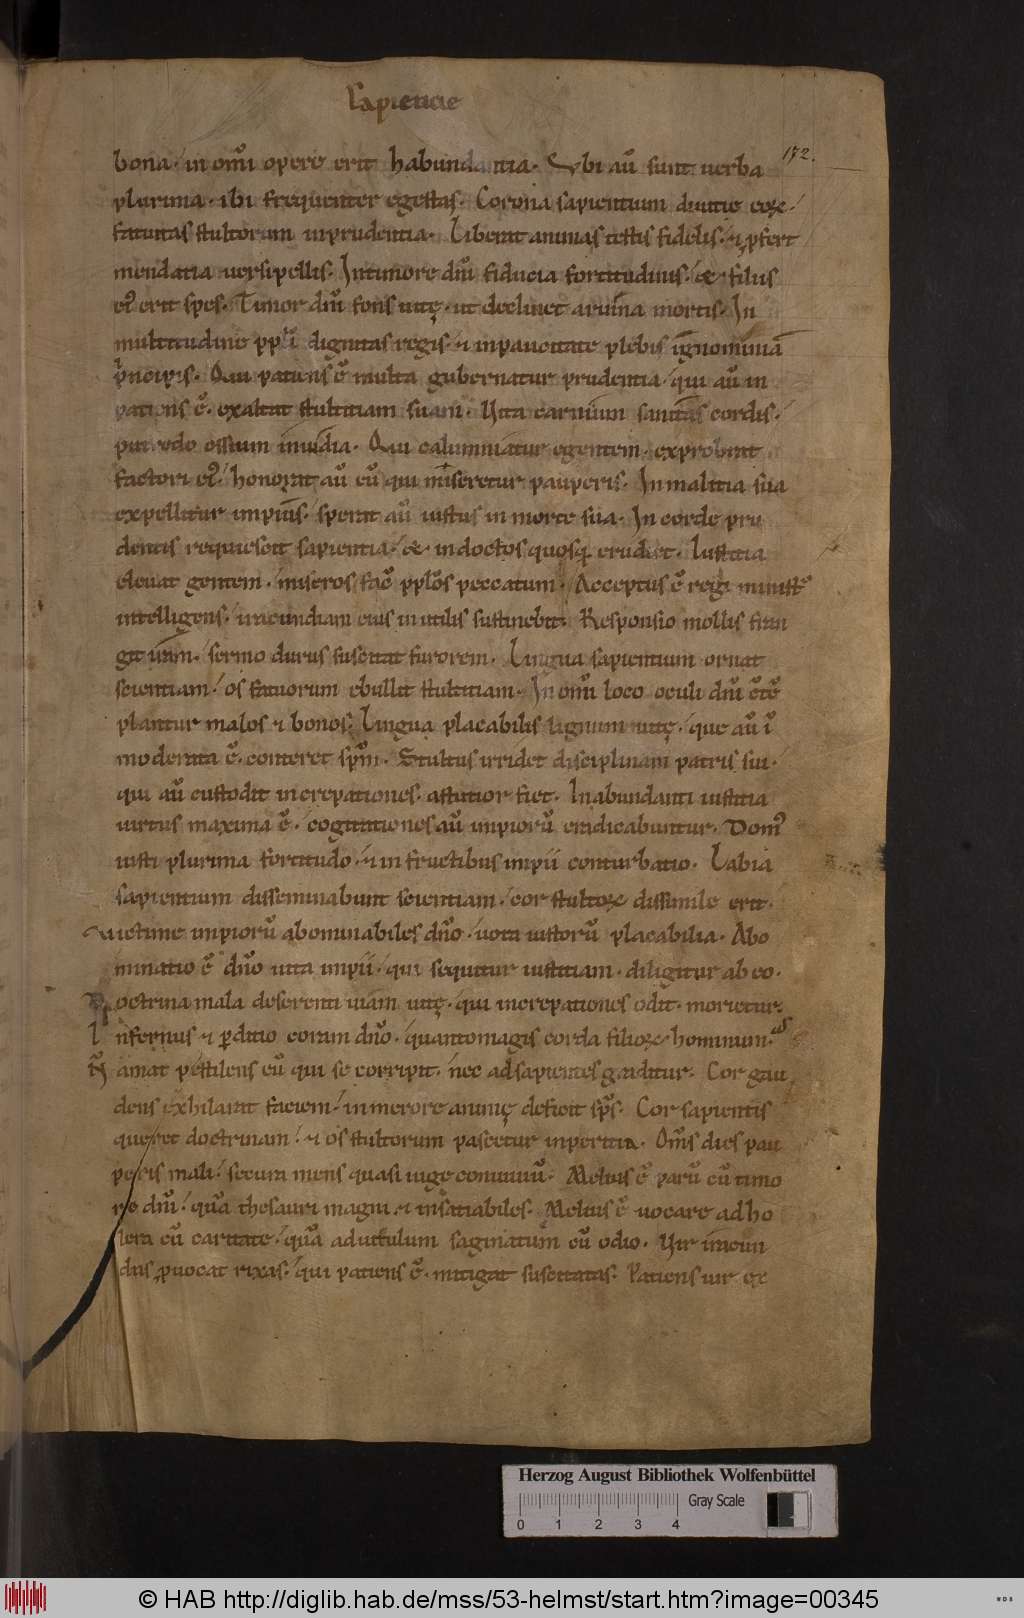 Sapientie
172.
bona. in om̄i opere erit habundantia. Ubi aū sunt uerba
plurima. ibi frequenter egestas. Corona sapientium diuitie eoꝝ.
fatuitas stultorum inprudentia. Liberat animas testis fidelis. ⁊ ꝓfert
mendatia uersipellis. In timore dn̄i fiducia fortitudinis. & filiis
ei᷒ erit spes. Timor dn̄i fons uitę. ut declinet a ruina mortis. In
multitudine ppl̄i dignitas regis. ⁊ in paucitate plebis ignominia
pͥncipis. Qui patiens ē multa gubernatur prudentia. qui aū in
patiens ē. exaltat stultitiam suam. Uita carnium sanitas cordis.
putredo ossium inuidia. Qui calumniatur egentem. exprobrat
factori ei᷒. honorat aū eū qui miseretur pauperis. In malitia sua
expellitur impius. sperat aū iustus in morte sua. In corde pru
dentis requiescit sapientia. & indoctos quosq; erudiet. Iustitia
eleuat gentem. miseros fac̄ ppl̄os peccatum. Acceptus ē regi minist᷒
intelligens. iracundiam eius inutilis sustinebit. Responsio mollis fran
git iram. sermo durus suscitat furorem. Lingua sapientium ornat
scientiam. os fatuorum ebullit stultitiam. In om̄i loco oculi dn̄i c̄tē
plantur malos ⁊ bonos. Lingua placabilis lignum uitę. que aū ī
moderata ē. conteret sp̄m. Stultus irridet disciplinam patris sui.
qui aū custodit increpationes. astutior fiet. In abundanti iustitia
uirtus maxima ē. cogitationes aū impiorū eradicabuntur. Dom᷒
iusti plurima fortitudo. ⁊ in fructibus impii conturbatio. Labia
sapientium disseminabunt scientiam. cor stultoꝝ dissimile erit.
Victime impiorū abominabiles dn̄o. uota iustorū placabilia. Abo
minatio ē dn̄o uita impii. qui sequitur iustitiam. diligitur ab eo.
Doctrina mala deserenti uiam uitę. qui increpationes odit. morietur.
Infernus ⁊ ꝑditio coram dn̄o. quantomagis corda filioꝝ hominum.
N̄ amat pestilens eū qui se corripit. nec ad sapientes graditur. Cor gau
dens exhilarat faciem. in merore animę deficit sp̄s. Cor sapientis
queret doctrinam. ⁊ os stultorum pascetur inperitia. Om̄s dies pau
peris mali. secura mens quasi iuge conuiuiū. Melius ē parū cū timo
re dn̄i. quā thesauri magni ⁊ insatiabiles. Melius ē uocare ad ho
lera cū caritate. quā ad uitulum saginatum cū odio. Uir iracun
dus ꝓuocat rixas. qui patiens ē. mitigat suscitatas. Patiens uir ex
Herzog August Bibliothek Wolfenbüttel
Gray Scale
0 1 2 3 4
© HAB http://diglib.hab.de/mss/53-helmst/start.htm?image=00345